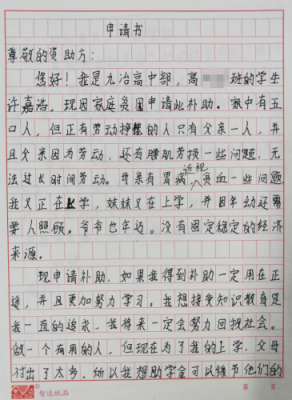 申请书
尊敬的资助方：
您好！我是九冶高中部，高班的学生
许嘉浩，现因家庭贫困申请此补助。家中有五
口人，但正有劳动挣的人只有父亲一人，并
且父亲因为劳动，还有腰肌劳损一些问题，无
法过长时间劳动。母亲有胃病近视贫血一些问题
我又正在上学，妹妹又在上学，并且年幼还需
要人照顾。爷爷也年迈。没有固定稳定的经济
来源。
现申请补助，如果我得到补助一定用在正
途，并且更加努力学习。我想接受知识教育是
我一直的追求，我将来一定会努力回报社会。
做一个有用的人，但现在为了我的上学，父母
付出了太多，所以我想助学金可以缓节他们的
智达纸品
第 页